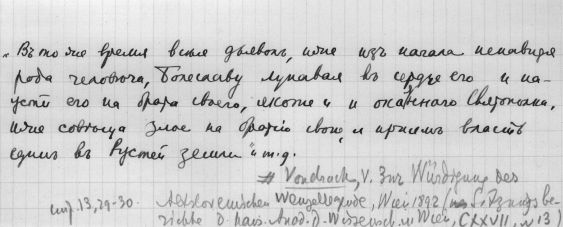 „Въ то же время всѣя дьяволъ, иже изъ начала ненавидя
рода человѣча, Болеславу лукавая въ сердце его и на-
усти его на брата своего, якоже и окаяннаго Святополка,
иже совѣща злое на братію свою, и пріимъ власть
единъ въ Рустѣй земли" т.д.
# Vondrack, V. Zur Würdigung des
13, 29-30. Altslovenischen Wenzellegende, Wien 1892 (Sitzungsbe-
richte d. kais. Akad. d. Wissensch. Wien, CXXVII, 13)